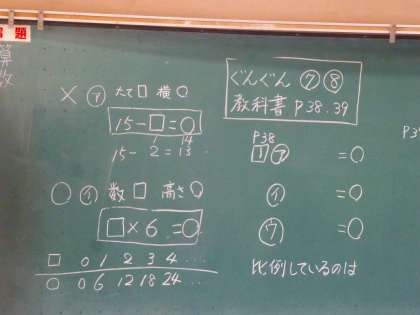 算数
× ㋐ たて□ 横○
15-□=○
1 14
15- 2=13 ...
○ ㋑ 数□ 高さ○
□×6=○
□ 0 1 2 3 4 ...
○ 0 6 12 18 24 ...
ぐんぐん ⑦⑧
教科書 P38.39
P38
1 ㋐ =○
㋑ =○
㋒ =○
比例しているのは